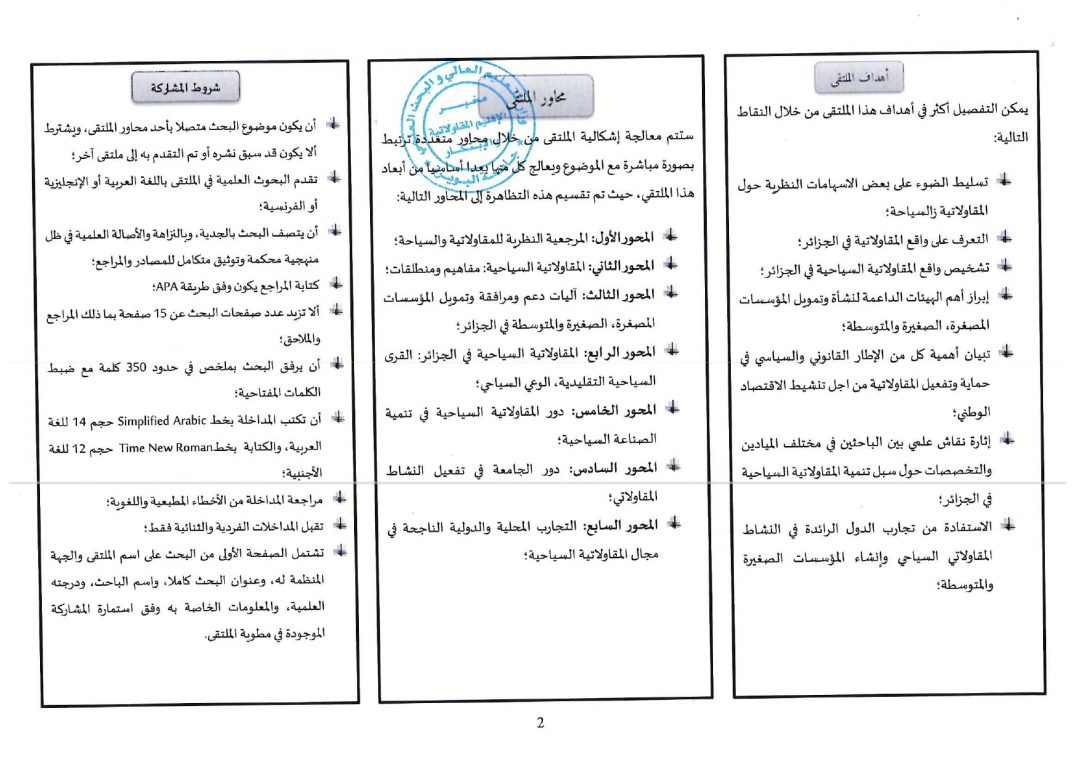 أهداف الملتقى
يمكن التفصيل أكثر في أهداف هذا الملتقى من خلال النقاط
التالية:
تسليط الضوء على بعض الاسهامات النظرية حول
المقاولاتية زالسياحة؛
التعرف على واقع المقاولاتية في الجزائر؛
تشخيص واقع المقاولاتية السياحية في الجزائر؛
إبراز أهم الهيئات الداعمة لنشأة وتمويل المؤسسات
المصغرة، الصغيرة والمتوسطة؛
تبيان أهمية كل من الإطار القانوني والسياسي في
حماية وتفعيل المقاولاتية من اجل تنشيط الاقتصاد
الوطني؛
إثارة نقاش علمي بين الباحثين في مختلف الميادين
والتخصصات حول سبل تنمية المقاولاتية السياحية
في الجزائر؛
الاستفادة من تجارب الدول الرائدة في النشاط
المقاولاتي السياحي وإنشاء المؤسسات الصغيرة
والمتوسطة؛
محاور الملتقى
ستتم معالجة إشكالية الملتقى من خلال محاور متعددة ترتبط
بصورة مباشرة مع الموضوع ويعالج كل منها بعدا أساسيا من أبعاد
هذا الملتقي، حيث تم تقسيم هذه التظاهرة إلى المحاور التالية:
المحور الأول: المرجعية النظرية للمقاولاتية والسياحة؛
المحور الثاني: المقاولاتية السياحية: مفاهيم ومنطلقات؛
المحور الثالث: آليات دعم ومرافقة وتمويل المؤسسات
المصغرة، الصغيرة والمتوسطة في الجزائر؛
المحور الرابع: المقاولاتية السياحية في الجزائر: القرى
السياحية التقليدية، الوعي السياحي؛
المحور الخامس: دور المقاولاتية السياحية في تنمية
الصناعة السياحية؛
المحور السادس: دور الجامعة في تفعيل النشاط
المقاولاتي؛
المحور السابع: التجارب المحلية والدولية الناجحة في
مجال المقاولاتية السياحية؛
شروط المشاركة
أن يكون موضوع البحث متصلا بأحد محاور الملتقى، ويشترط
ألا يكون قد سبق نشره أو تم التقدم به إلى ملتقى آخر؛
تقدم البحوث العلمية في الملتقى باللغة العربية أو الإنجليزية
أو الفرنسية؛
أن يتصف البحث بالجدية، وبالنزاهة والأصالة العلمية في ظل
منهجية محكمة وتوثيق متكامل للمصادر والمراجع؛
كتابة المراجع يكون وفق طريقة APA؛
ألا تزيد عدد صفحات البحث عن 15 صفحة بما ذلك المراجع
والملاحق؛
أن يرفق البحث بملخص في حدود 350 كلمة مع ضبط
الكلمات المفتاحية؛
أن تكتب المداخلة بخط Simplified Arabic حجم 14 للغة
العربية، والكتابة بخط Time New Roman حجم 12 للغة
الأجنبية؛
مراجعة المداخلة من الأخطاء المطبعية واللغوية؛
تقبل المداخلات الفردية والثنائية فقط؛
تشتمل الصفحة الأولى من البحث على اسم الملتقى والجهة
المنظمة له، وعنوان البحث كاملا، واسم الباحث، ودرجته
العلمية، والمعلومات الخاصة به وفق استمارة المشاركة
الموجودة في مطوية الملتقى.
2